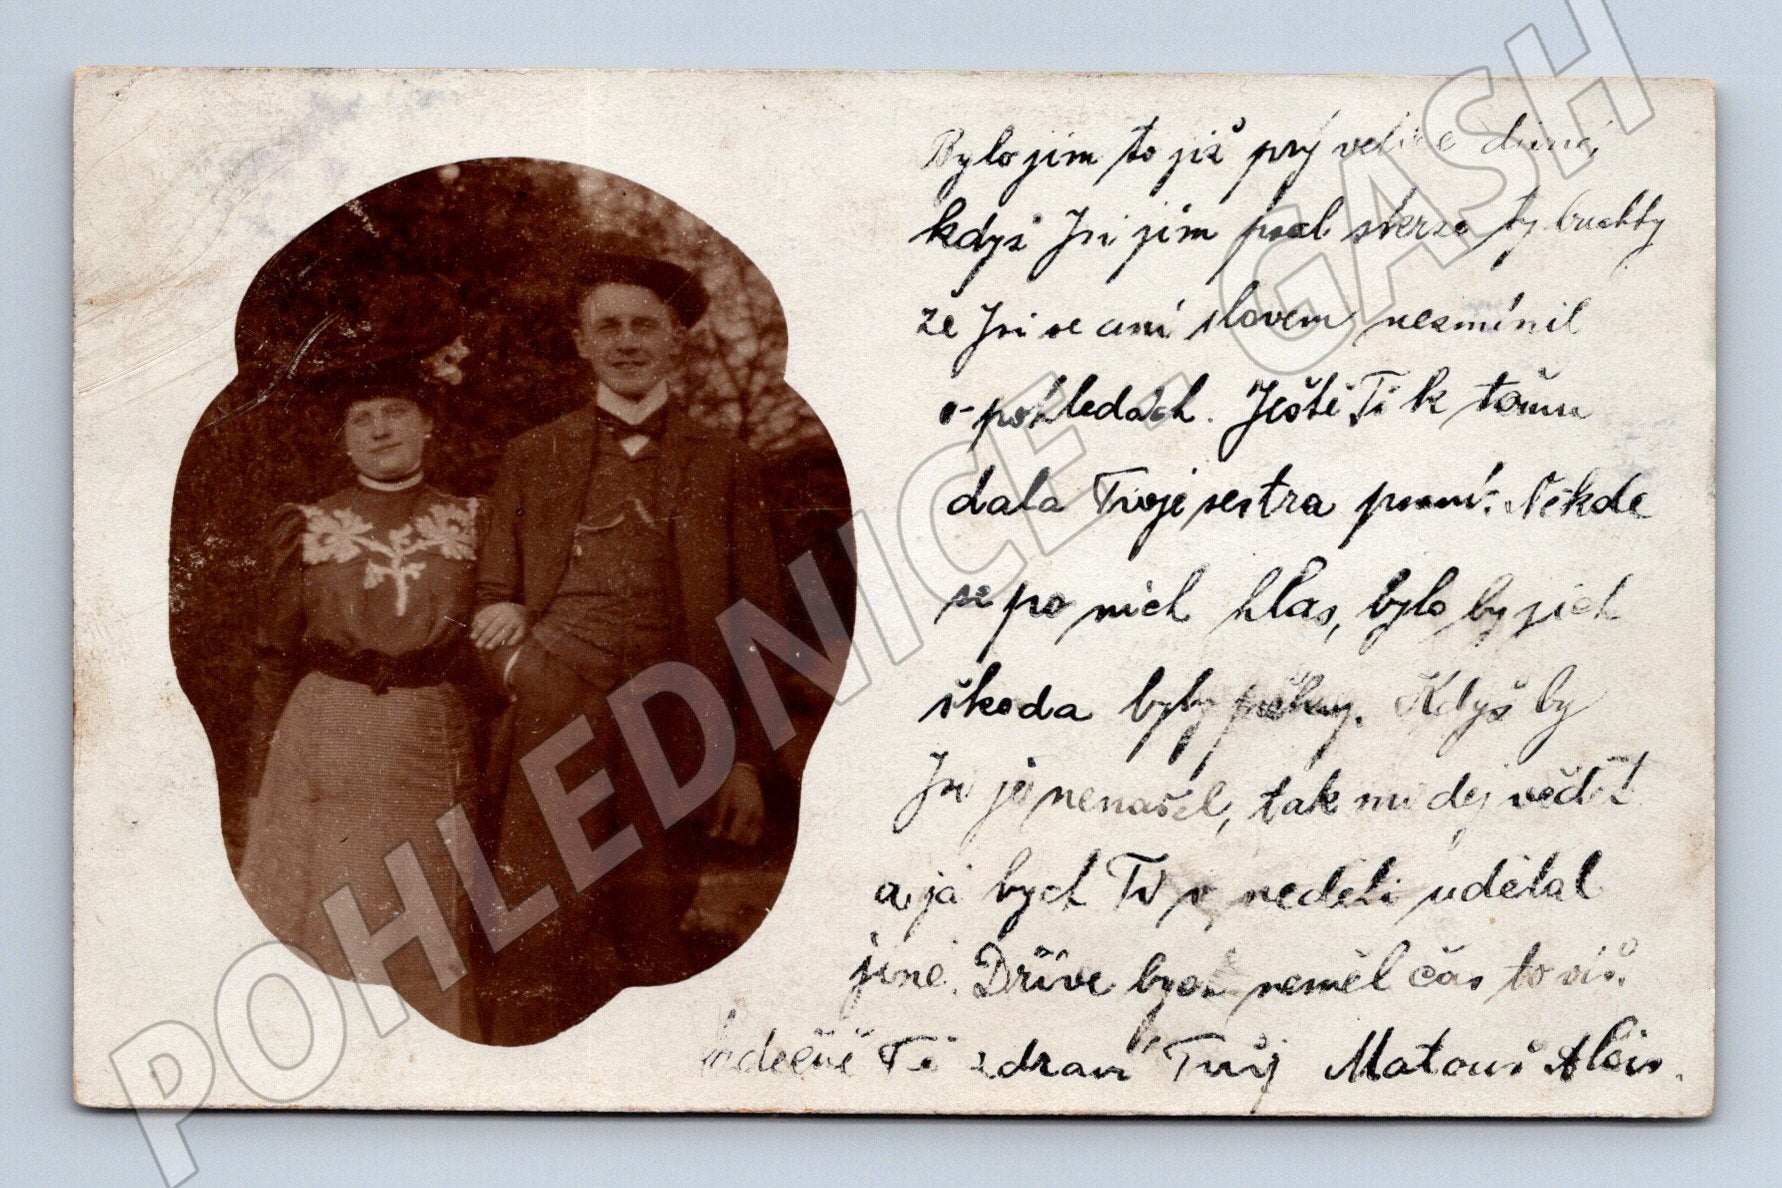 Bylo jim to již prý velice divné,
když Jsi jim psal skrze ty buchty
že Jsi se ani slovem nezmínil
o pohledách. Ještě Ti k tomu
dala Tvoje sestra psaní. Někde
se po nich hlas, bylo by jich
škoda byly pěkny. Když by
Jsi je nenašel, tak mi dej vědět
a já bych Ti v neděli udělal
jiné. Dříve bych neměl čas to víš.
Srdečně Tě zdraví Tvůj Matouš Alois.
POHLEDNICE - GASH